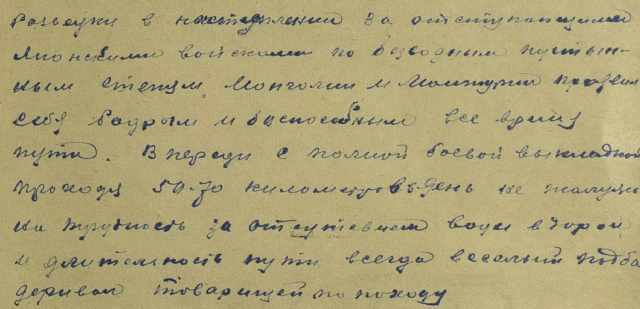 разведки в наступлении за отступающими
японскими войсками по безводным пустын-
ным степям Монголии и Манчурии проявил
себя бодрым и боеспособным все время
пути. В переди с полной боевой выкладкой
проходя 50-70 километров в день не жалуясь
на трудность за отсутствием воды в дороге
и длительность пути всегда веселый подба
деривал товарищей по походу